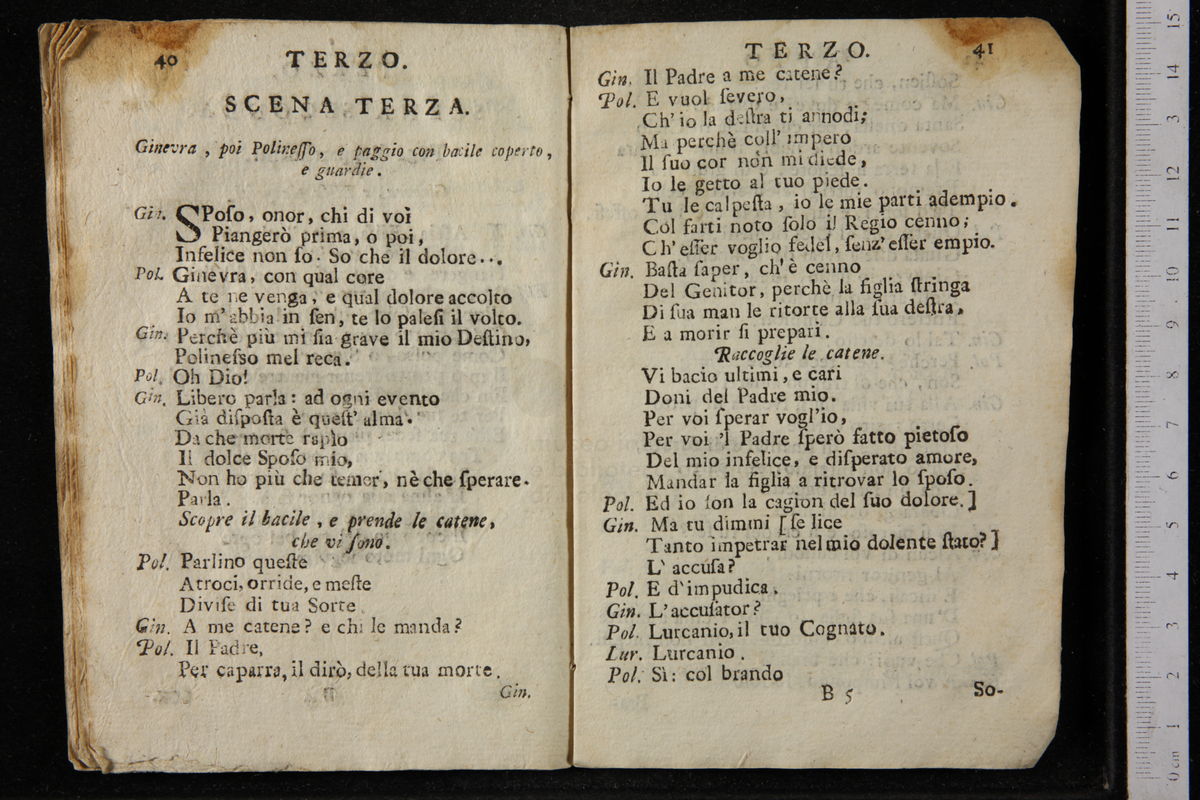 40
TERZO.
SCENA TERZA.
Ginevra, poi Polineſſo, e paggio con bacile coperto,
e guardie.
Gin. SPoſo, onor, chi di voi
Piangerò prima, o poi,
Infelice non ſo. So che il dolore...
Pol. Ginevra, con qual core
A te ne venga, e qual dolore accolto
Io m'abbia in ſen, te lo paleſi il volto.
Gin. Perchè più mi ſia grave il mio Deſtino,
Polineſso mel reca.
Pol. Oh Dio!
Gin. Libero parla: ad ogni evento
Già diſpoſta è queſt' alma.
Da che morte rapìo
Il dolce Spoſo mio,
Non ho più che temer, nè che ſperare.
Parla.
Scopre il bacile, e prende le catene,
che vi ſono.
Pol. Parlino queſte
Atroci, orride, e meſte
Diviſe di tua Sorte.
Gin. A me catene? e chi le manda?
Pol. Il Padre,
Per caparra, il dirò, della tua morte.
Gin.
TERZO.
41
Gin. Il Padre a me catene?
Pol. E vuol ſevero,
Ch' io la deſtra ti annodi;
Ma perchè coll' impero
Il ſuo cor non mi diede,
Io le getto al tuo piede.
Tu le calpeſta, io le mie parti adempio.
Col farti noto ſolo il Regio cenno;
Ch' eſſer voglio fedel, ſenz' eſſer empio.
Gin. Baſta ſaper, ch' è cenno
Del Genitor, perchè la figlia ſtringa
Di ſua man le ritorte alla ſua deſtra,
E a morir ſi prepari.
Raccoglie le catene.
Vi bacio ultimi, e cari
Doni del Padre mio.
Per voi ſperar vogl'io,
Per voi 'l Padre ſperò fatto pietoſo
Del mio infelice, e diſperato amore,
Mandar la figlia a ritrovar lo ſpoſo.
Pol. Ed io ſon la cagion del ſuo dolore.]
Gin. Ma tu dimmi [ſe lice
Tanto impetrar nel mio dolente ſtato?]
L' accuſa?
Pol. E d'impudica.
Gin. L'accuſator?
Pol. Lurcanio, il tuo Cognato.
Lur. Lurcanio.
Pol. Sì: col brando
B 5
So-